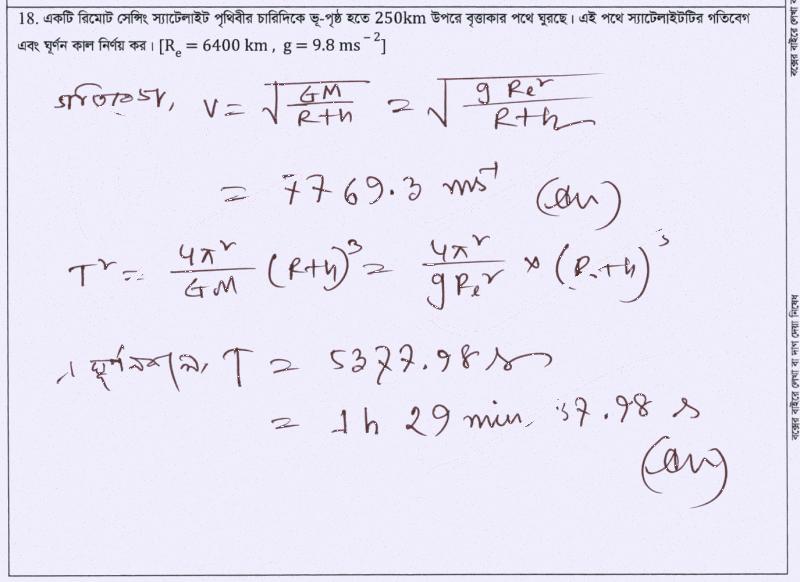 18. একটি রিমোট সেন্সিং স্যাটেলাইট পৃথিবীর চারিদিকে ভূ-পৃষ্ঠ হতে 250km উপরে বৃত্তাকার পথে ঘুরছে। এই পথে স্যাটেলাইটটির গতিবেগ
এবং ঘূর্ণন কাল নির্ণয় কর। [Rₑ = 6400 km , g = 9.8 ms⁻²]
গতিবেগ, V = √(GM/(R+h)) = √(g Re²/(R+h))
= 7769.3 ms⁻¹ (Ans)
T² = 4π²/GM (R+h)³ = 4π²/(g Re²) × (R+h)³
∴ ঘূর্ণনকাল, T = 5377.98 s
= 1h 29 min 37.98 s
(Ans)
বক্সের বাইরে লেখা বা দাগ দেয়া নিষেধ